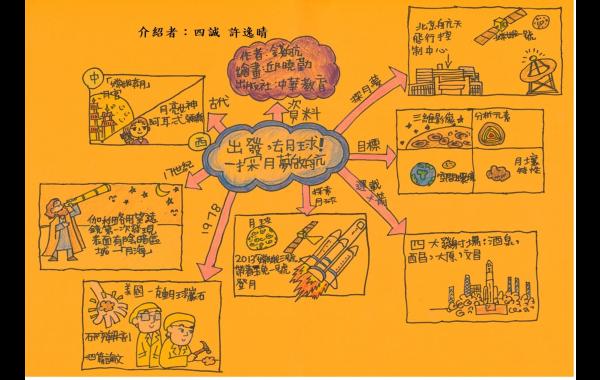 介紹者：四誠 許逸晴
作者:錢航
繪畫:邱曉勤
出版社:中華教育
資料
出發,去月球!
探月夢啟航
古代
中
「嫦娥奔月」
月宮
西
月亮女神
阿耳忒彌斯
17世紀
伽利略用望遠
鏡第一次發現
表面有陰暗區
域-「月海」
1978
美國一克月球岩石
四篇論文
探索
月球
月球
2013嫦娥三號
登月
運載火箭
四大發射場:酒泉,
西昌,太原,文昌
目標
三維影像
分析元素
月壤
特性
探月夢
北京航天
飛行控
制中心
嫦娥一號